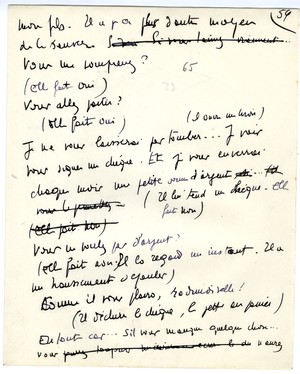 54
mon fils. Il n'y a pas d'autre moyen
de le sauver. Si vous l'aimez vraiment...
Vous me comprenez ?
65
(Elle fait oui)
Vous allez partir ?
(Elle fait oui)
Je ne vous laisserai pas tomber... Je vais
vous signer un chèque. Et je vous enverrai
chaque mois une petite somme d'argent
(Il lui tend un chèque. Elle
fait non)
(Elle fait non)
Vous ne voulez pas d'argent ?
(Elle fait non. Il la regarde un instant. Il a
un haussement d'épaules)
Comme il vous plaira, mademoiselle !
(Il déchire le chèque, le jette au panier)
En tout cas... Si vous manquez quelque chose...
vous